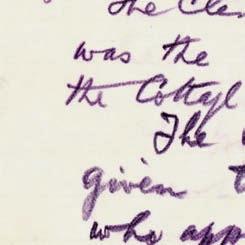 the
was the
the Cottage
The
given
who